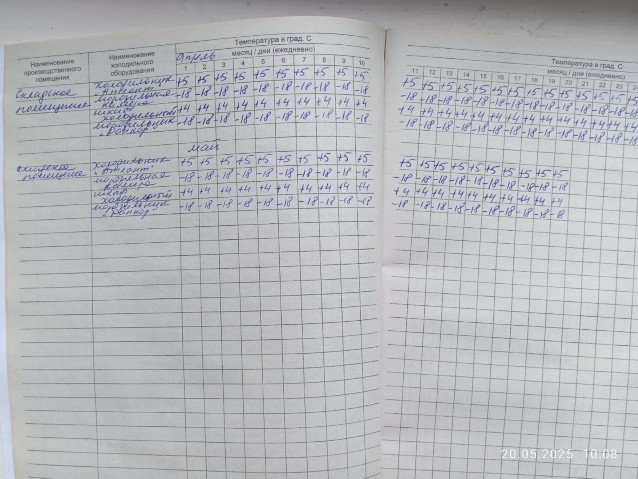 Температура в град. С
Наименование производственного помещения
Наименование холодильного оборудования
Апрель
месяц / дни (ежедневно)
1 2 3 4 5 6 7 8 9 10
Складское помещение
Холодильник Атлант +5 +5 +5 +5 +5 +5 +5 +5 +5 +5
морозильная камера -18 -18 -18 -18 -18 -18 -18 -18 -18 -18
шкаф холодильный +4 +4 +4 +4 +4 +4 +4 +4 +4 +4
морозильник -18 -18 -18 -18 -18 -18 -18 -18 -18 -18
май
складское помещение
Холодильник "Атлант" +5 +5 +5 +5 +5 +5 +5 +5 +5 +5
морозильная камера -18 -18 -18 -18 -18 -18 -18 -18 -18 -18
шкаф холодильный +4 +4 +4 +4 +4 +4 +4 +4 +4 +4
морозильник -18 -18 -18 -18 -18 -18 -18 -18 -18 -18
Температура в град. С
месяц / дни (ежедневно)
11 12 13 14 15 16 17 18 19 20 21 22 23 24
+5 +5 +5 +5 +5 +5 +5 +5 +5 +5 +5 +5 +5
-18 -18 -18 -18 -18 -18 -18 -18 -18 -18 -18 -18 -18
+4 +4 +4 +4 +4 +4 +4 +4 +4 +4 +4 +4 +4
-18 -18 -18 -18 -18 -18 -18 -18 -18 -18 -18 -18 -18
+5 +5 +5 +5 +5 +5 +5 +5 +5
-18 -18 -18 -18 -18 -18 -18 -18 -18
+4 +4 +4 +4 +4 +4 +4 +4 +4
-18 -18 -18 -18 -18 -18 -18 -18 -18
20.05.2025 10:08